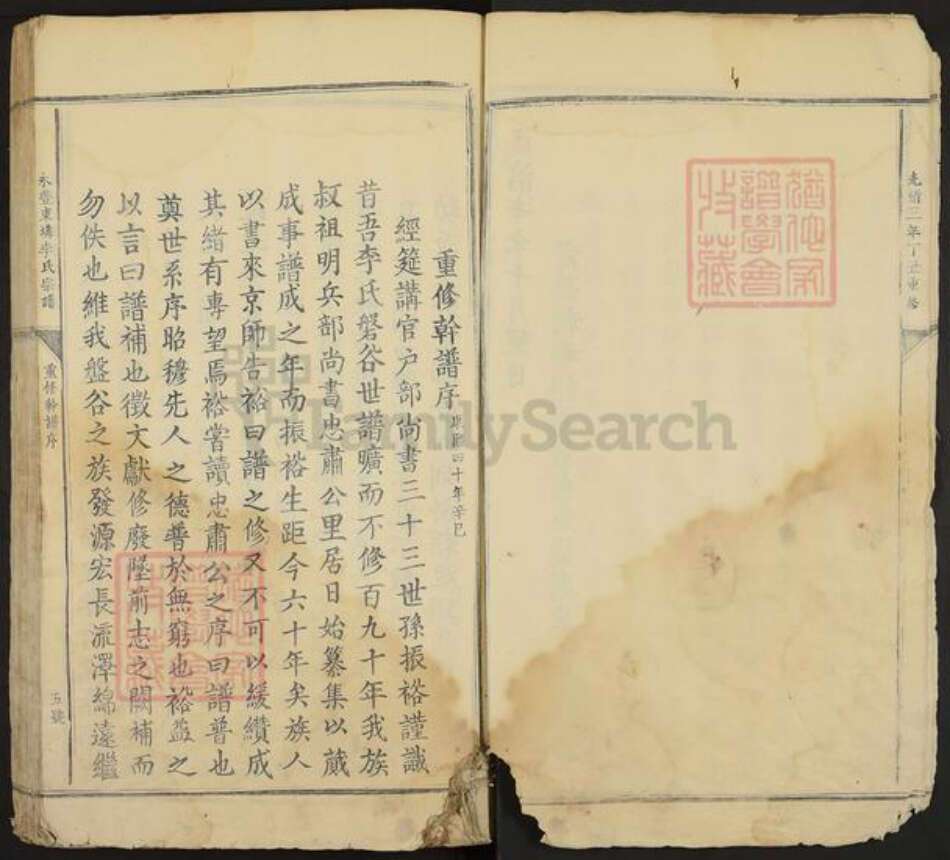 光緒三年丁丑重修
猶他家譜學會收藏
重修幹譜序 康熙四十年辛巳
經筵講官户部尚書三十三世孫振裕謹識
昔吾李氏磐谷世譜曠而不修百九十年我族
叔祖明兵部尚書忠肅公里居日始纂集以蕆
成事譜成之年而振裕生距今六十年矣族人
以書來京師告裕曰譜之修又不可以緩纘成
其緒有專望焉裕嘗讀忠肅公之序曰譜普也
奠世系序昭穆先人之德普於無窮也裕益之
以言曰譜補也徵文獻修廢墜前志之闕補而
勿佚也維我盤谷之族發源宏長流澤綿遠繼
永豐東塘李氏宗譜
重修幹譜序
五號
FamilySearch